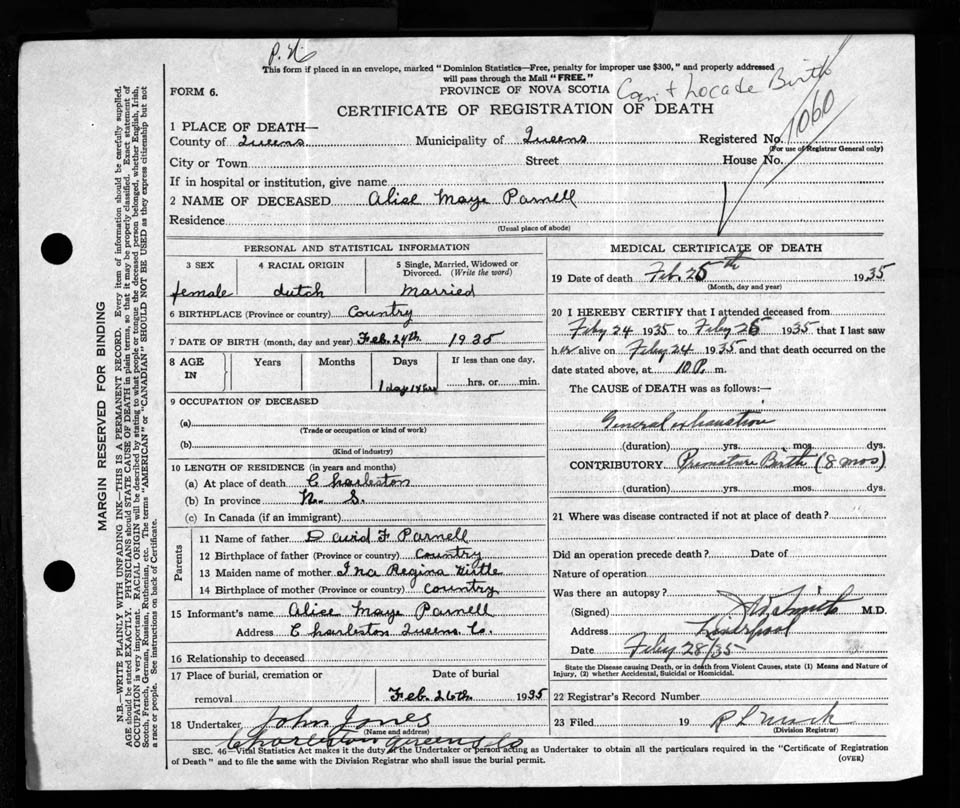 P.N
This form if placed in an envelope, marked "Dominion Statistics—Free, penalty for improper use $300," and properly addressed
will pass through the Mail "FREE."
FORM 6.
PROVINCE OF NOVA SCOTIA
Can't Locate Birth
CERTIFICATE OF REGISTRATION OF DEATH
1060
1 PLACE OF DEATH—
County of Queens Municipality of Queens Registered No.
(For use of Registrar General only)
City or Town Street House No.
If in hospital or institution, give name
2 NAME OF DECEASED Alise Maye Parnell
Residence
(Usual place of abode)
MARGIN RESERVED FOR BINDING
N.B.—WRITE PLAINLY, WITH UNFADING INK—THIS IS A PERMANENT RECORD. Every item of information should be carefully supplied.
AGE should be stated EXACTLY. PHYSICIANS should STATE CAUSE OF DEATH in plain terms, so that it may be properly classified. Exact statement of
OCCUPATION is very important. RACIAL ORIGIN will be described by stating to what people or tongue the deceased person belonged, whether English, Irish,
Scotch, French, German, Russian, Ruthenian, etc. The terms "AMERICAN" or "CANADIAN" SHOULD NOT BE USED as they express citizenship but not
a race or people. See instructions on back of Certificate.
PERSONAL AND STATISTICAL INFORMATION
3 SEX
female
4 RACIAL ORIGIN
dutch
5 Single, Married, Widowed or
Divorced. (Write the word)
Married
6 BIRTHPLACE (Province or country) Country
7 DATE OF BIRTH (month, day and year) Feb. 24th 1935
8 AGE IN
Years Months Days If less than one day,
1 day hrs. or min.
9 OCCUPATION OF DECEASED
(a)
(Trade or occupation or kind of work)
(b)
(Kind of industry)
10 LENGTH OF RESIDENCE (in years and months)
(a) At place of death Charleston
(b) In province N. S.
(c) In Canada (if an immigrant)
Parents
11 Name of father David F Parnell
12 Birthplace of father (Province or country) Country
13 Maiden name of mother Ina Regina Wittle
14 Birthplace of mother (Province or country) Country
15 Informant's name Alise Maye Parnell
Address Charleston Queens Co.
16 Relationship to deceased
17 Place of burial, cremation or
removal
Date of burial
Feb. 26th 1935
18 Undertaker John Jones
(Name and address)
Charleston Queens Co
MEDICAL CERTIFICATE OF DEATH
19 Date of death Feb. 25th 1935
(Month, day and year)
20 I HEREBY CERTIFY that I attended deceased from
Feby 24 1935 to Feby 25 1935 that I last saw
her alive on Feby 24 1935 and that death occurred on the
date stated above, at 10 P. m.
The CAUSE of DEATH was as follows:—
General exhaustion
(duration) yrs. mos. dys.
CONTRIBUTORY Premature Birth (8 mos)
(duration) yrs. mos. dys.
21 Where was disease contracted if not at place of death?
Did an operation precede death? Date of
Nature of operation
Was there an autopsy?
(Signed) Smith M.D.
Address Liverpool
Date Feby 28/35
State the Disease causing Death, or in death from Violent Causes, state (1) Means and Nature of
Injury, (2) whether Accidental, Suicidal or Homicidal.
22 Registrar's Record Number
23 Filed 19
(Division Registrar)
SEC. 46—Vital Statistics Act makes it the duty of the Undertaker or person acting as Undertaker to obtain all the particulars required in the "Certificate of Registration
of Death" and to file the same with the Division Registrar who shall issue the burial permit.
(OVER)